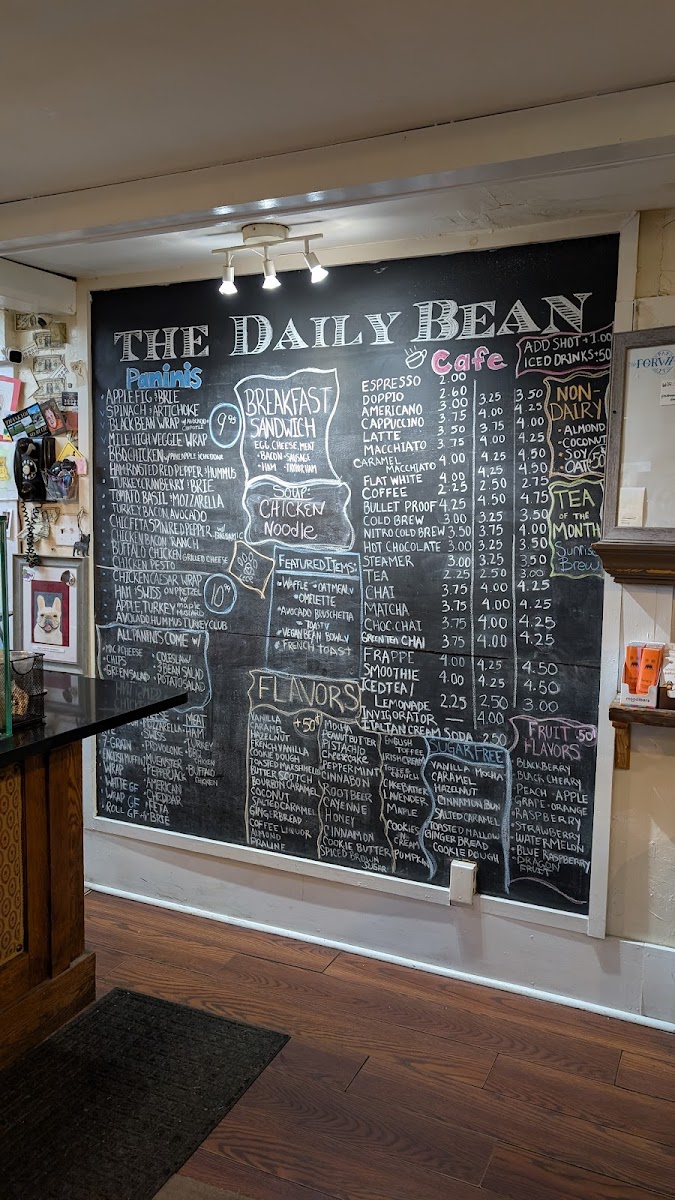 THE DAILY BEAN
Paninis
APPLE FIG & BRIE
SPINACH & ARTICHOKE
BLACK BEAN WRAP W/ AVOCADO & CHIPOTLE
MILE HIGH VEGGIE WRAP
BBQ CHICKEN W/ PINEAPPLE
HAM ROASTED RED PEPPER & HUMMUS
TURKEY CRANBERRY & BRIE
TOMATO BASIL & MOZZARELLA
TURKEY BACON AVOCADO
CHIC FETA SPIN RED PEPPER
CHICKEN BACON RANCH
BUFFALO CHICKEN GRILLED CHEESE
CHICKEN PESTO
9.95
CHICKEN CAESAR WRAP
HAM & SWISS ON PRETZEL
APPLE TURKEY MAPLE
AVOCADO HUMMUS TURKEY CLUB
ALL PANINIS COME W/
MAC & CHEESE
• CHIPS
• GREEN SALAD
• COLESLAW
• 3 BEAN SALAD
• POTATO SALAD
MOZZARELLA
SWISS
PROVOLONE
MUENSTER
PEPPERJACK
AMERICAN
CHEDDAR
FETA
BRIE
MEAT
HAM
TURKEY
BUFFALO CHICKEN
7-GRAIN
ENGLISH MUFFIN
WRAP
WHITE GF
WRAP GF
ROLL GF
BREAKFAST
SANDWICH
EGG, CHEESE, MEAT
• BACON • SAUSAGE
• HAM • TAYLOR HAM
SOUP:
CHICKEN
NOODLE
FEATURED ITEMS:
• WAFFLE • OATMEAL
• OMELETTE
• AVOCADO BRUSCHETTA
TOAST
• VEGAN BEAN BOWL
• FRENCH TOAST
FLAVORS
+50¢
VANILLA
CARAMEL
HAZELNUT
FRENCH VANILLA
COOKIE DOUGH
TOASTED MARSHMALLOW
BUTTER SCOTCH
BOURBON CARAMEL
COCONUT
SALTED CARAMEL
GINGERBREAD
COFFEE LIQUOR
ALMOND
PRALINE
MOCHA
PEANUT BUTTER
PISTACHIO
CUPCAKE
PEPPERMINT
CINNABON
ROOTBEER
CAYENNE
HONEY
CINNAMON
COOKIE BUTTER
SPICED BROWN
SUGAR
ENGLISH
TOFFEE
IRISH CREME
FRENCH
CAKE BATTER
LAVENDER
MAPLE
COOKIES
-N-
CREAM
PUMPKIN
Cafe
ESPRESSO 2.00
DOPPIO 2.60
AMERICANO 3.00 3.25 3.50
CAPPUCCINO 3.75 4.00 4.25
LATTE 3.50 3.75 4.00
MACCHIATO 3.75 4.00 4.25
CARAMEL
MACCHIATO 4.00 4.25 4.50
FLAT WHITE 4.00
COFFEE 2.25 2.50 2.75
BULLET PROOF 4.25 4.50 4.75
COLD BREW 3.00 3.25 3.50
NITRO COLD BREW 3.50 3.75 4.00
HOT CHOCOLATE 3.00
STEAMER 3.00 3.25 3.50
TEA 2.25 2.50 3.00
CHAI 3.75 4.00 4.25
MATCHA 3.75 4.00 4.25
CHOC. CHAI 3.75 4.00 4.25
GREEN TEA CHAI 3.75 4.00 4.25
FRAPPE 4.00 4.25 4.50
SMOOTHIE 4.00 4.25 4.50
ICED TEA /
LEMONADE 2.25 2.50 3.00
INVIGORATOR — 4.00
ITALIAN CREAM SODA 2.50
ADD SHOT +1.00
ICED DRINKS +.50
NON-
DAIRY
• ALMOND
• COCONUT
• SOY
• OAT .50
TEA
OF THE
MONTH
Sunrise
Brew
SUGAR FREE
VANILLA
MOCHA
CARAMEL
HAZELNUT
CINNAMON BUN
SALTED CARAMEL
TOASTED MALLOW
GINGER BREAD
COOKIE DOUGH
FRUIT .50
FLAVORS
BLACKBERRY
BLACK CHERRY
PEACH • APPLE
GRAPE • ORANGE
RASPBERRY
STRAWBERRY
WATERMELON
• BLUE RASPBERRY
• DRAGON
FRUIT